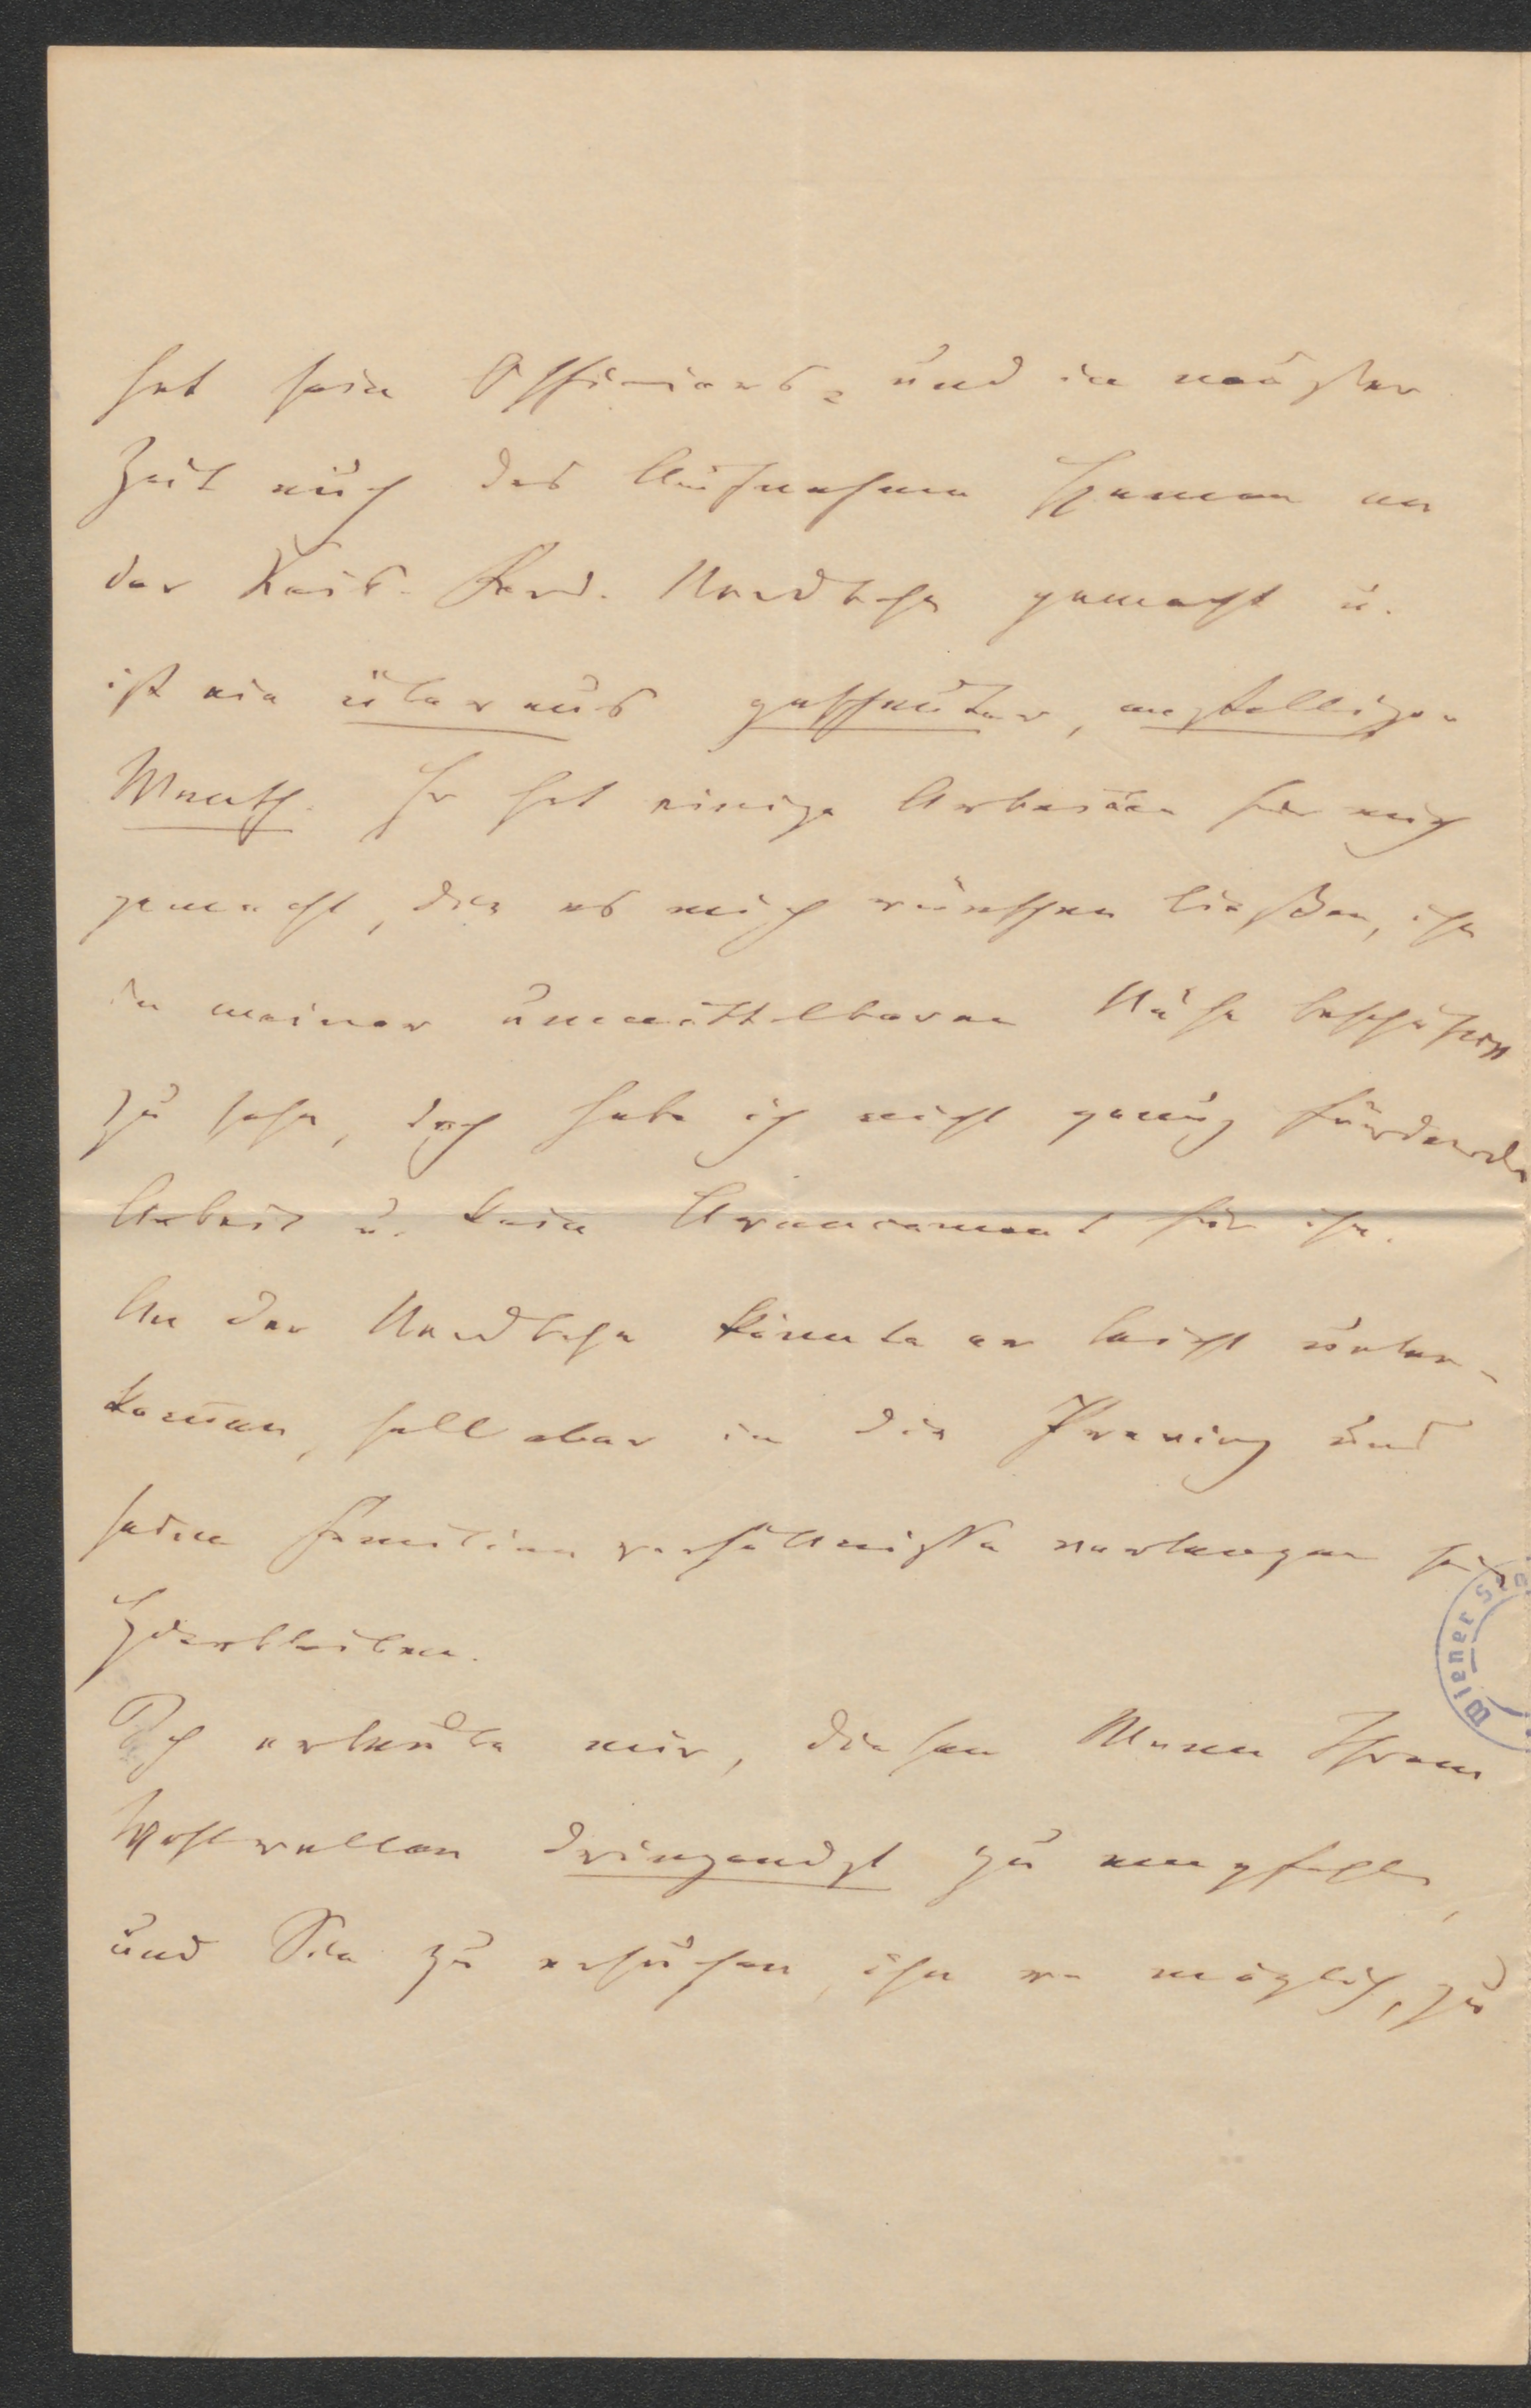 hat sein Officiers- und in neuester
Zeit auch das Aufnahms Examen an
der Kais. Ferd. Nordbahn gemacht u.
ist ein überaus gescheuter, anstelliger
Mensch. Er hat einige Arbeiten für mich
gemacht, die es mich wünschen ließen, ihn
in meiner unmittelbaren Nähe beschäftigt
zu sehn, doch habe ich nicht genug fördernde
Arbeit u. kein Avancement für ihn.
An der Nordbahn könnte er leicht unter-
kommen, soll aber in die Provinz und
seine Familienverhältnisse verlangen sein
Hierbleiben.
Ich erlaube mir, diesen Mann Ihrem
Wohlwollen dringendst zu empfehlen,
und Sie zu ersuchen, ihn wo möglich, zu
Wiener